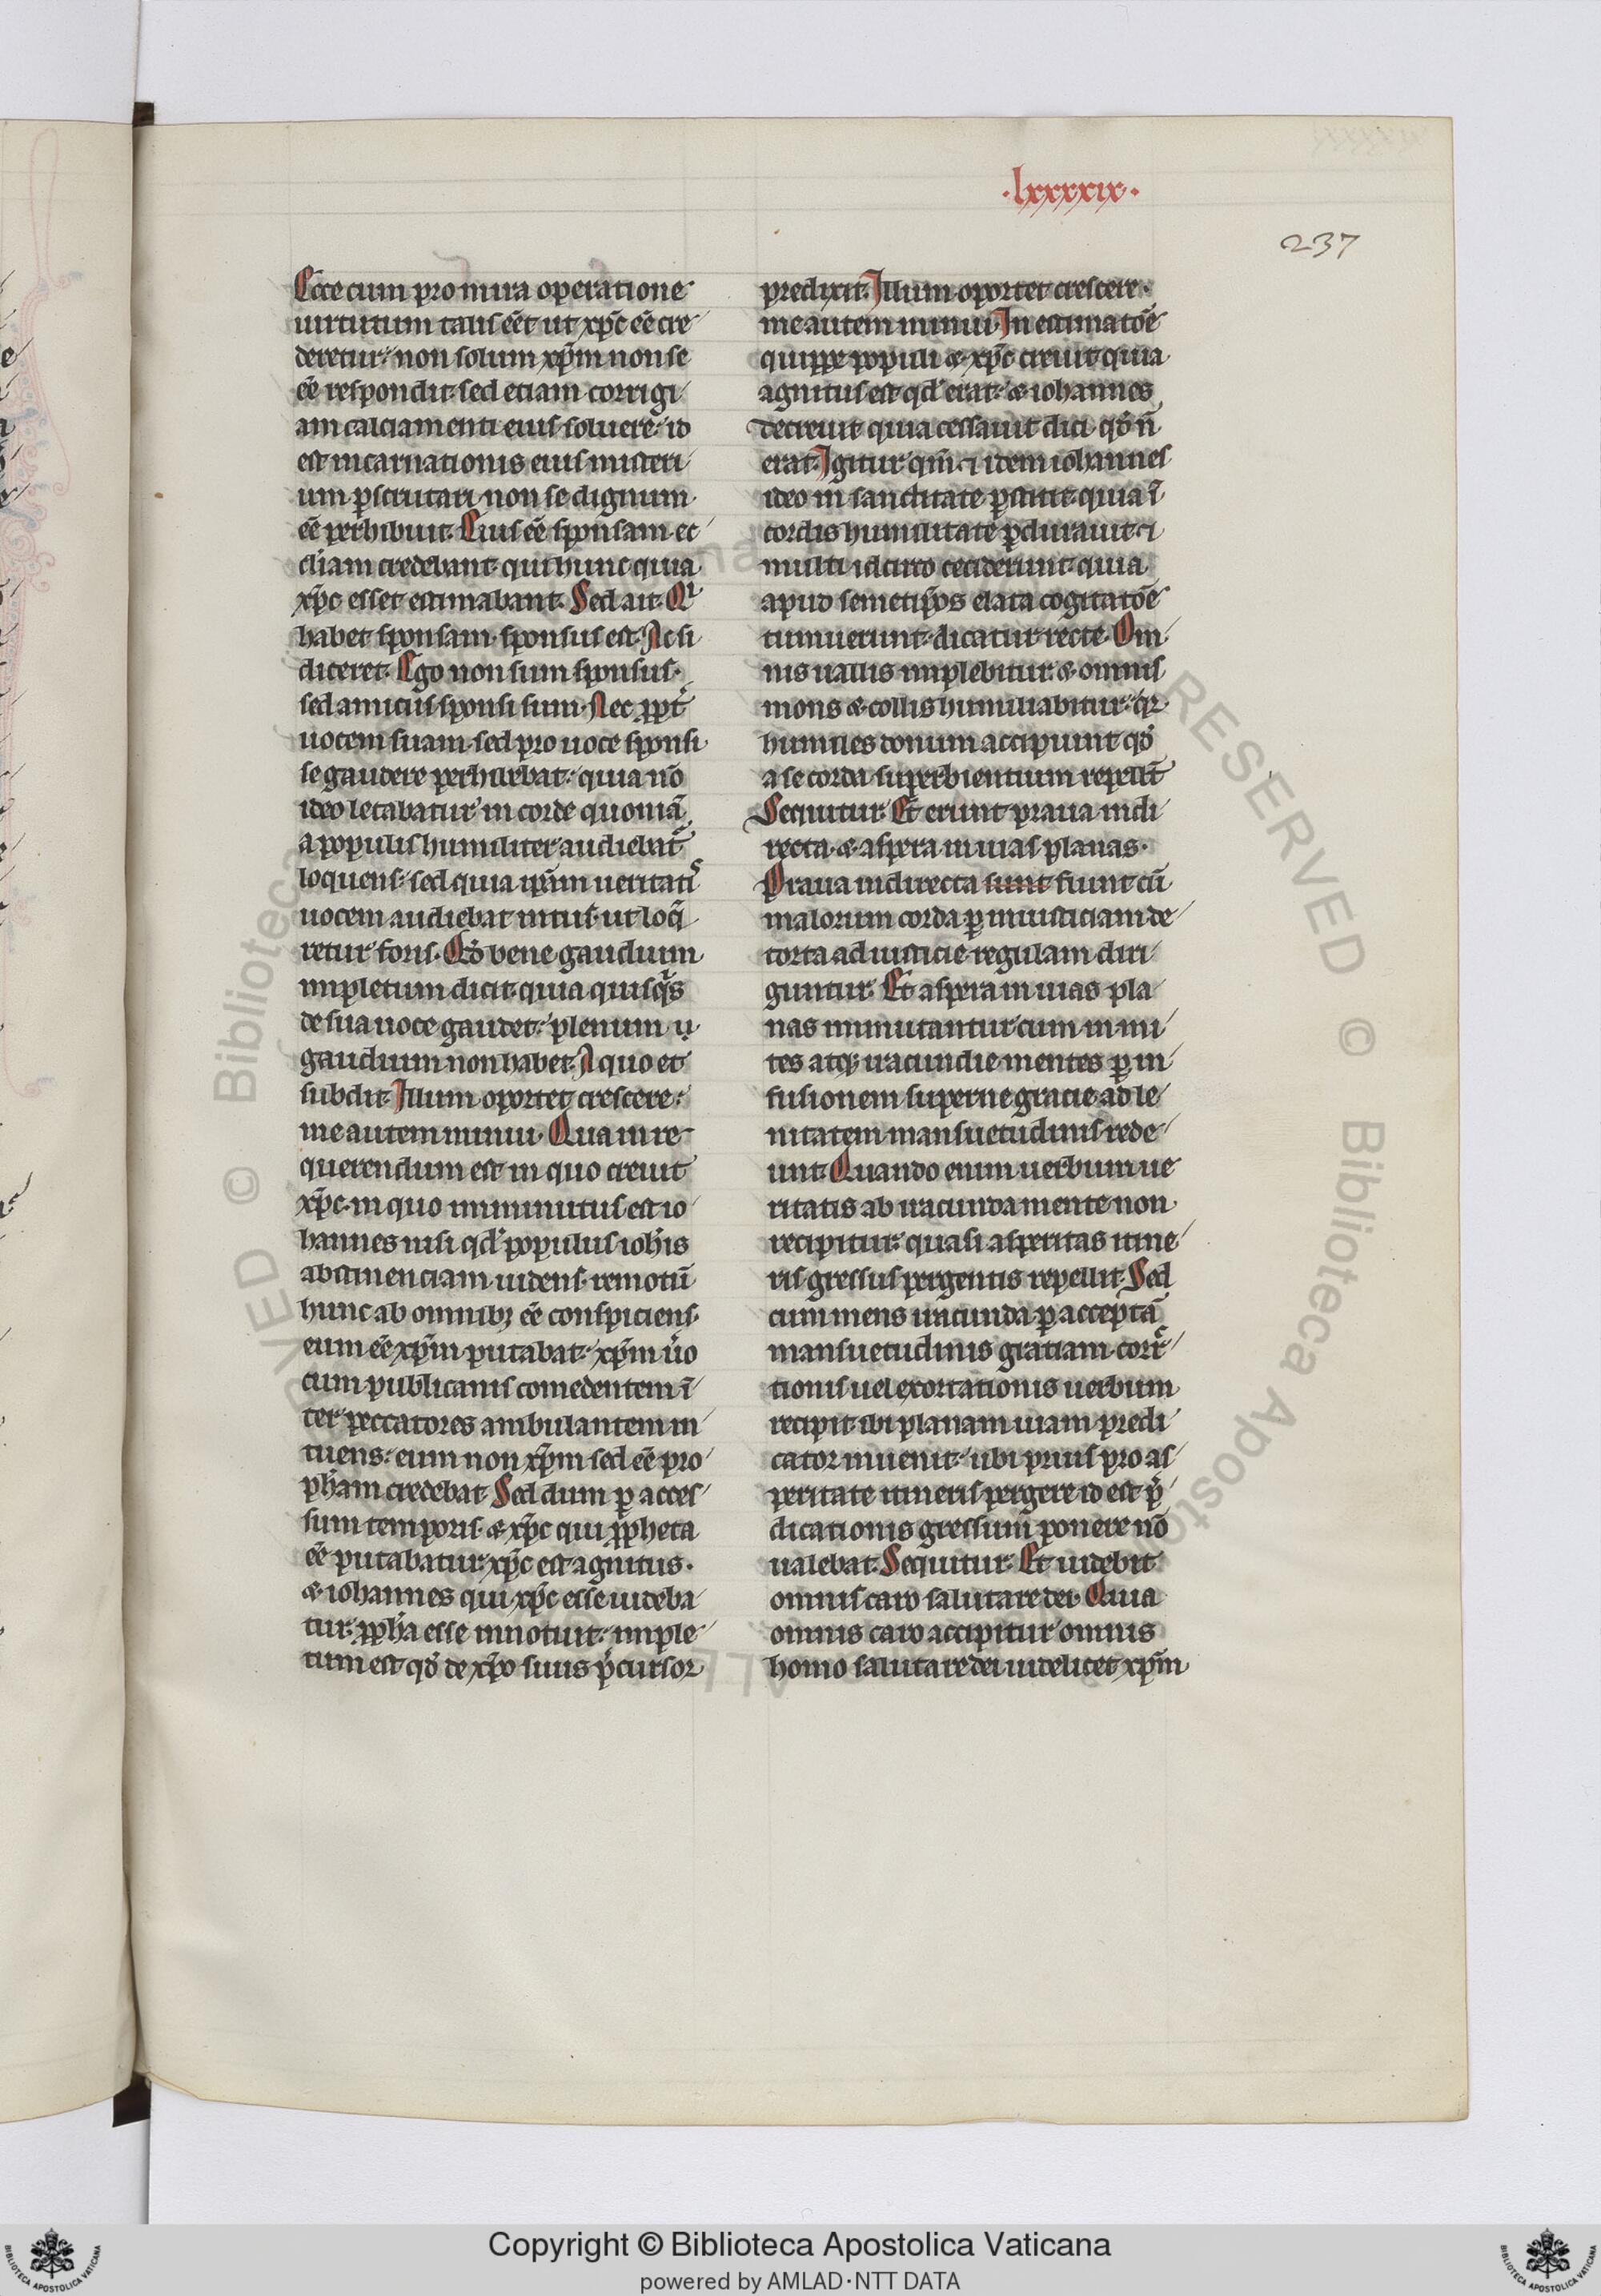 ·lxxxxix·
237
Ecce cum pro mira operatione
uirtutum talis eēt ut xp̄c eē cre
deretur. non solum xp̄m non se
eē respondit. sed etiam corrigi
am calciamenti eius soluere. id
est incarnationis eius misteri
um pscrutari non se dignum
eē perhibuit. Eius eē sponsam ec
cliam credebant. qui hunc quia
xp̄c esset estimabant. Sed ait. Qi
habet sponsam. sponsus est. Ac si
diceret. Ego non sum sponsus.
sed amicus sponsi sum. Nec ppt
uocem suam. sed pro uoce sponsi
se gaudere perhibebat. quia nō
ideo letabatur in corde quoniā
a populis humiliter audiebat
loquens. sed quia ip̄am ueritatis
uocem audiebat intus. ut loq
retur foris. Qd̄ bene gaudium
impletum dicit. quia quisqs
de sua uoce gaudet. plenum
gaudium non habet. A quo et
subdit. Illum oportet crescere.
me autem minui. Qua in re
querendum est in quo creuit
xp̄c. in quo imminutus est io
hannes nisi qd̄ populus ioh̄is
abstinenciam uidens. remotū
hunc ab omnibꝫ eē conspiciens.
eum eē xp̄m putabat. xp̄m uo
cum publicanis comedentem ī
ter peccatores ambulantem in
tuens. eum non xp̄m sed eē pro
pham credebat. Sed dum p acces
sum temporis. & xp̄c qui ppheta
eē putabatur. xp̄c est agnitus.
& iohannes qui xp̄c esse uideba
tur. pph̄a esse innotuit. imple
tum est qd̄ de xp̄o suus pcursor
predixit. Illum oportet crescere.
me autem minui. In estimatōe
quippe populi & xp̄c creuit quia
agnitus est qd̄ erat. & iohannes
decreuit quia cessauit dici qd̄ n̄
erat. Igitur qm̄ ⁊ idem iohannes
ideo in sanctitate pstitit. quia ī
cordis humilitate pdurauit. ⁊
multi idcirco ceciderunt. quia
apud semetip̄os elata cogitatōe
tumuerunt. dicatur recte. Om
nis uallis implebitur. & omnis
mons & collis humiliabitur. qr
humiles donum accipiunt qd̄
a se corda superbientium repellūt
Sequitur. Et erunt praua in di
recta. & aspera in uias planas.
Praua in directa sunt fiunt cū
malorum corda p iniusticiam de
torta ad iusticie regulam diri
guntur. Et aspera in uias pla
nas inmutantur cum inmi
tes atqꝫ iracundie mentes p in
fusionem superne gracie ad le
nitatem mansuetudinis rede
unt. Quando enim uerbum ue
ritatis ab iracunda mente non
recipitur. quasi asperitas itine
ris gressus pergentis repellit. Sed
cum mens iracunda p acceptā
mansuetudinis gratiam corr
tionis uel exortationis uerbum
recipit. ibi planam uiam predi
cator inuenit. ubi prius pro as
peritate itineris pergere id est p
dicationis gressum ponere nō
ualebat. Sequitur. Et uidebit
omnis caro salutare dei. Quia
omnis caro accipitur omnis
homo salutare dei uidelicet xp̄m
Copyright © Biblioteca Apostolica Vaticana
powered by AMLAD·NTT DATA